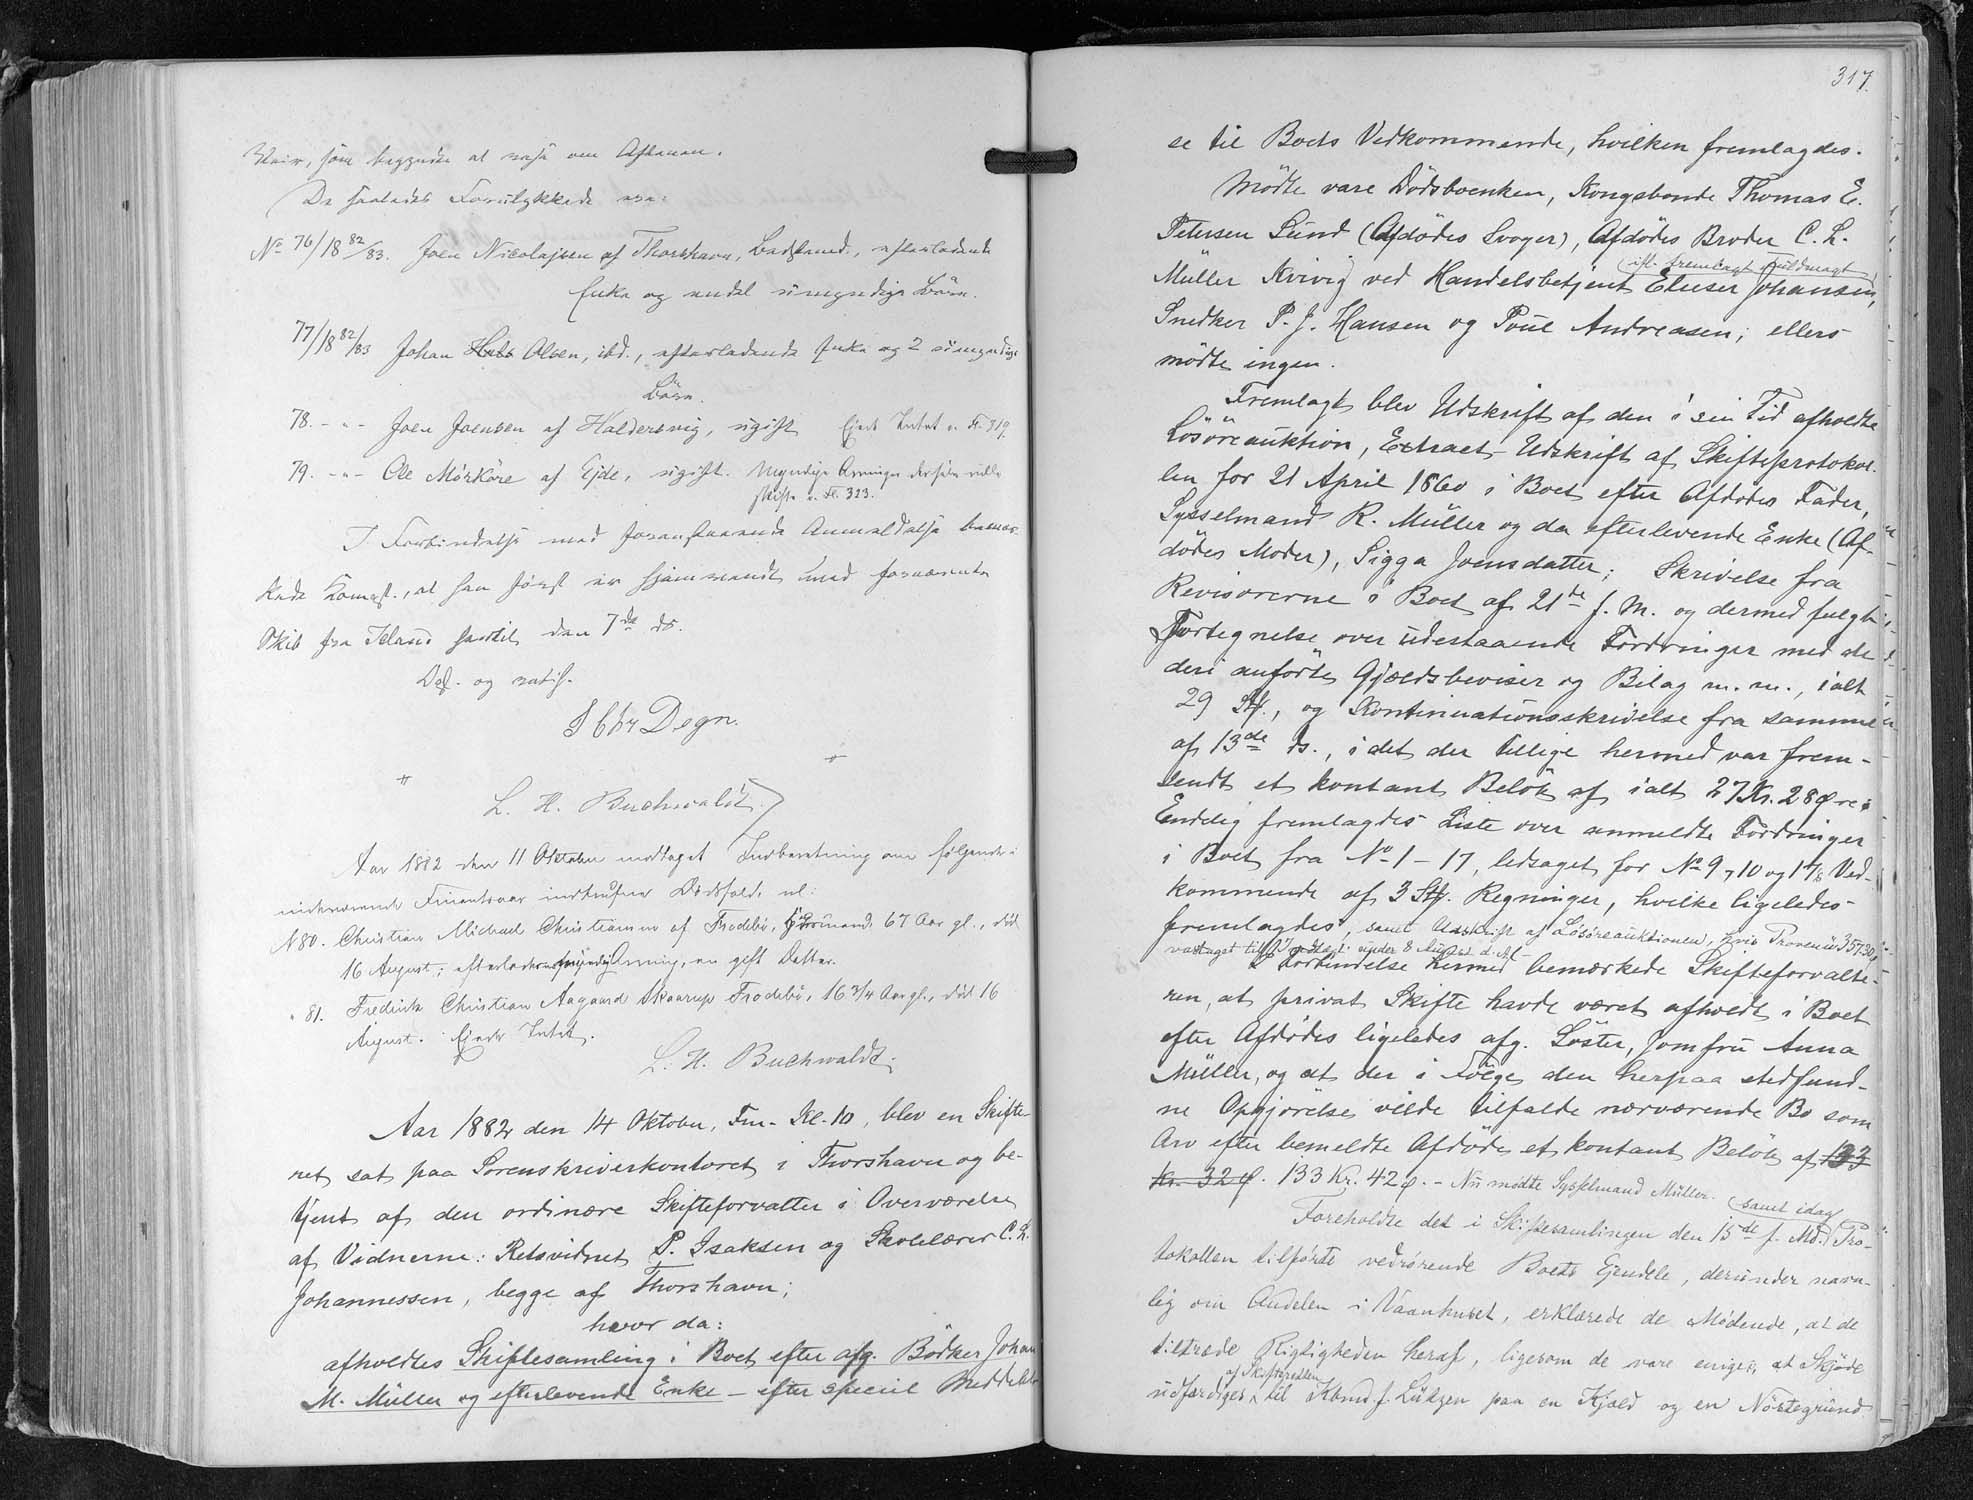 Veir, som begyndte at reise om Aftenen.
De saaledes Forulykkede ere:
No 76/18 82/83. Joen Nicolajsen af Thorshavn, Bedstemd., efterladende
Enke og endel umyndige Børn.
77/18 82/83 Johan Hans Olsen, ibd., efterladende Enke og 2 umyndige
Børn.
78. - " - Joen Joensen af Haldersvig, ugift Ejede Intet v. Fl. 319.
79. - " - Ole Mörköre af Ejde, ugift. Myndige Arvinger der selv ville
skifte v. Fl. 323.
I Forbindelse med foranstaaende Anmeldelse bemær-
kede Komp., at han først er hjemvendt med fornævnte
Skib fra Island hertil den 7de ds.
Dep. og ratif.
J Chr Degn.
L. H. Buchwaldt.
Aar 1882 den 11 Oktober modtaget Indberetning om følgende i
nærværende Finantsaar indtrufne Dødsfald, nl:
N 80. Christian Michael Christiansen af Frodebö, Huusmand, 67 Aar gl., död
16 August; efterlader myndig Arving, en gift Datter.
" 81. Fredrik Christian Aagaard Skaarup Frodebö, 16 3/4 Aar gl., död 16
August. Ejede Intet.
L. H. Buchwaldt.
Aar 1882 den 14 Oktober, Fm. Kl. 10, blev en Skifte-
ret sat paa Sorenskriverkontoret i Thorshavn og be-
tjent af den ordinære Skifteforvalter i Overværelse
af Vidnerne: Retsvidnet P. Isaksen og Skolelærer C. L.
Johannessen, begge af Thorshavn;
hvor da:
afholdtes Skiftesamling i Boet efter afg. Bödker Johan
M. Müller og efterlevende Enke - efter speciel Meddelel-
317.
se til Boets Vedkommende, hvilken fremlagdes.
Mödte vare Dödsboenken, Kongsbonde Thomas E.
Petersen Sund (Afdödes Svoger), Afdödes Broder C. L.
ifl. fremlagt Fuldmagt
Müller Kvivig ved Handelsbetjent Elieser Johansen,
Snedker P. J. Hansen og Poul Andreasen; ellers
mödte ingen.
Fremlagt blev Udskrift af den i sin Tid afholdte
Lösöreauktion, Extract-Udskrift af Skifteprotokol-
len for 21 April 1860 i Boet efter Afdödes Fader,
Sysselmand R. Müller og da efterlevende Enke (Af-
dödes Moder), Sigga Joensdatter; Skrivelse fra
Revisorerne i Boet af 21de f. M. og dermed fulgt
Fortegnelse over udestaaende Fordringer med de
deri anförte Gjældsbeviser og Bilag m. m., ialt
29 Stk., og Kontinuationsskrivelse fra samme
af 13de ds., idet der tillige hermed var frem-
sendt et kontant Belöb af ialt 27 Kr. 28 Öre;
Endelig fremlagdes Liste over anmeldte Fordringer
i Boet fra No 1 - 17, ledsaget for No 9, 10 og 14's Ved-
kommende af 3 Stk. Regninger, hvilke ligeledes
fremlagdes, samt Udskrift af Lösöreauktionen, hvis Provenü 357.30 ø
var taget til Indtægt under 8 Aug
I Forbindelse hermed bemærkede Skifteforvalte-
ren, at privat Skifte havde været afholdt i Boet
efter Afdödes ligeledes afg. Söster, Jomfru Anna
Müller, og at der i Fölge den herpaa stedfund-
ne Opgjörelse vilde tilfalde nærværende Bo som
Arv efter bemeldte Afdöde et kontant Belöb af 133
Kr. 32 ø. 133 Kr. 42 ø. - Nu mødte Sysselmand Müller.
samt idag
Foreholdte det i Skiftesamlingen den 15de f. Md. Pro-
tokollen tilførte vedrørende Boets Ejendele, derunder navn-
lig om Andelen i Vaanhuset, erklærede de Mødende, at de
tiltræde Rigtigheden heraf, ligesom de vare enige i, at Skjøde
af Skifteretten
udfærdiges til Kbmd. J. Lützen paa en Kjæld og en Nöstegrund